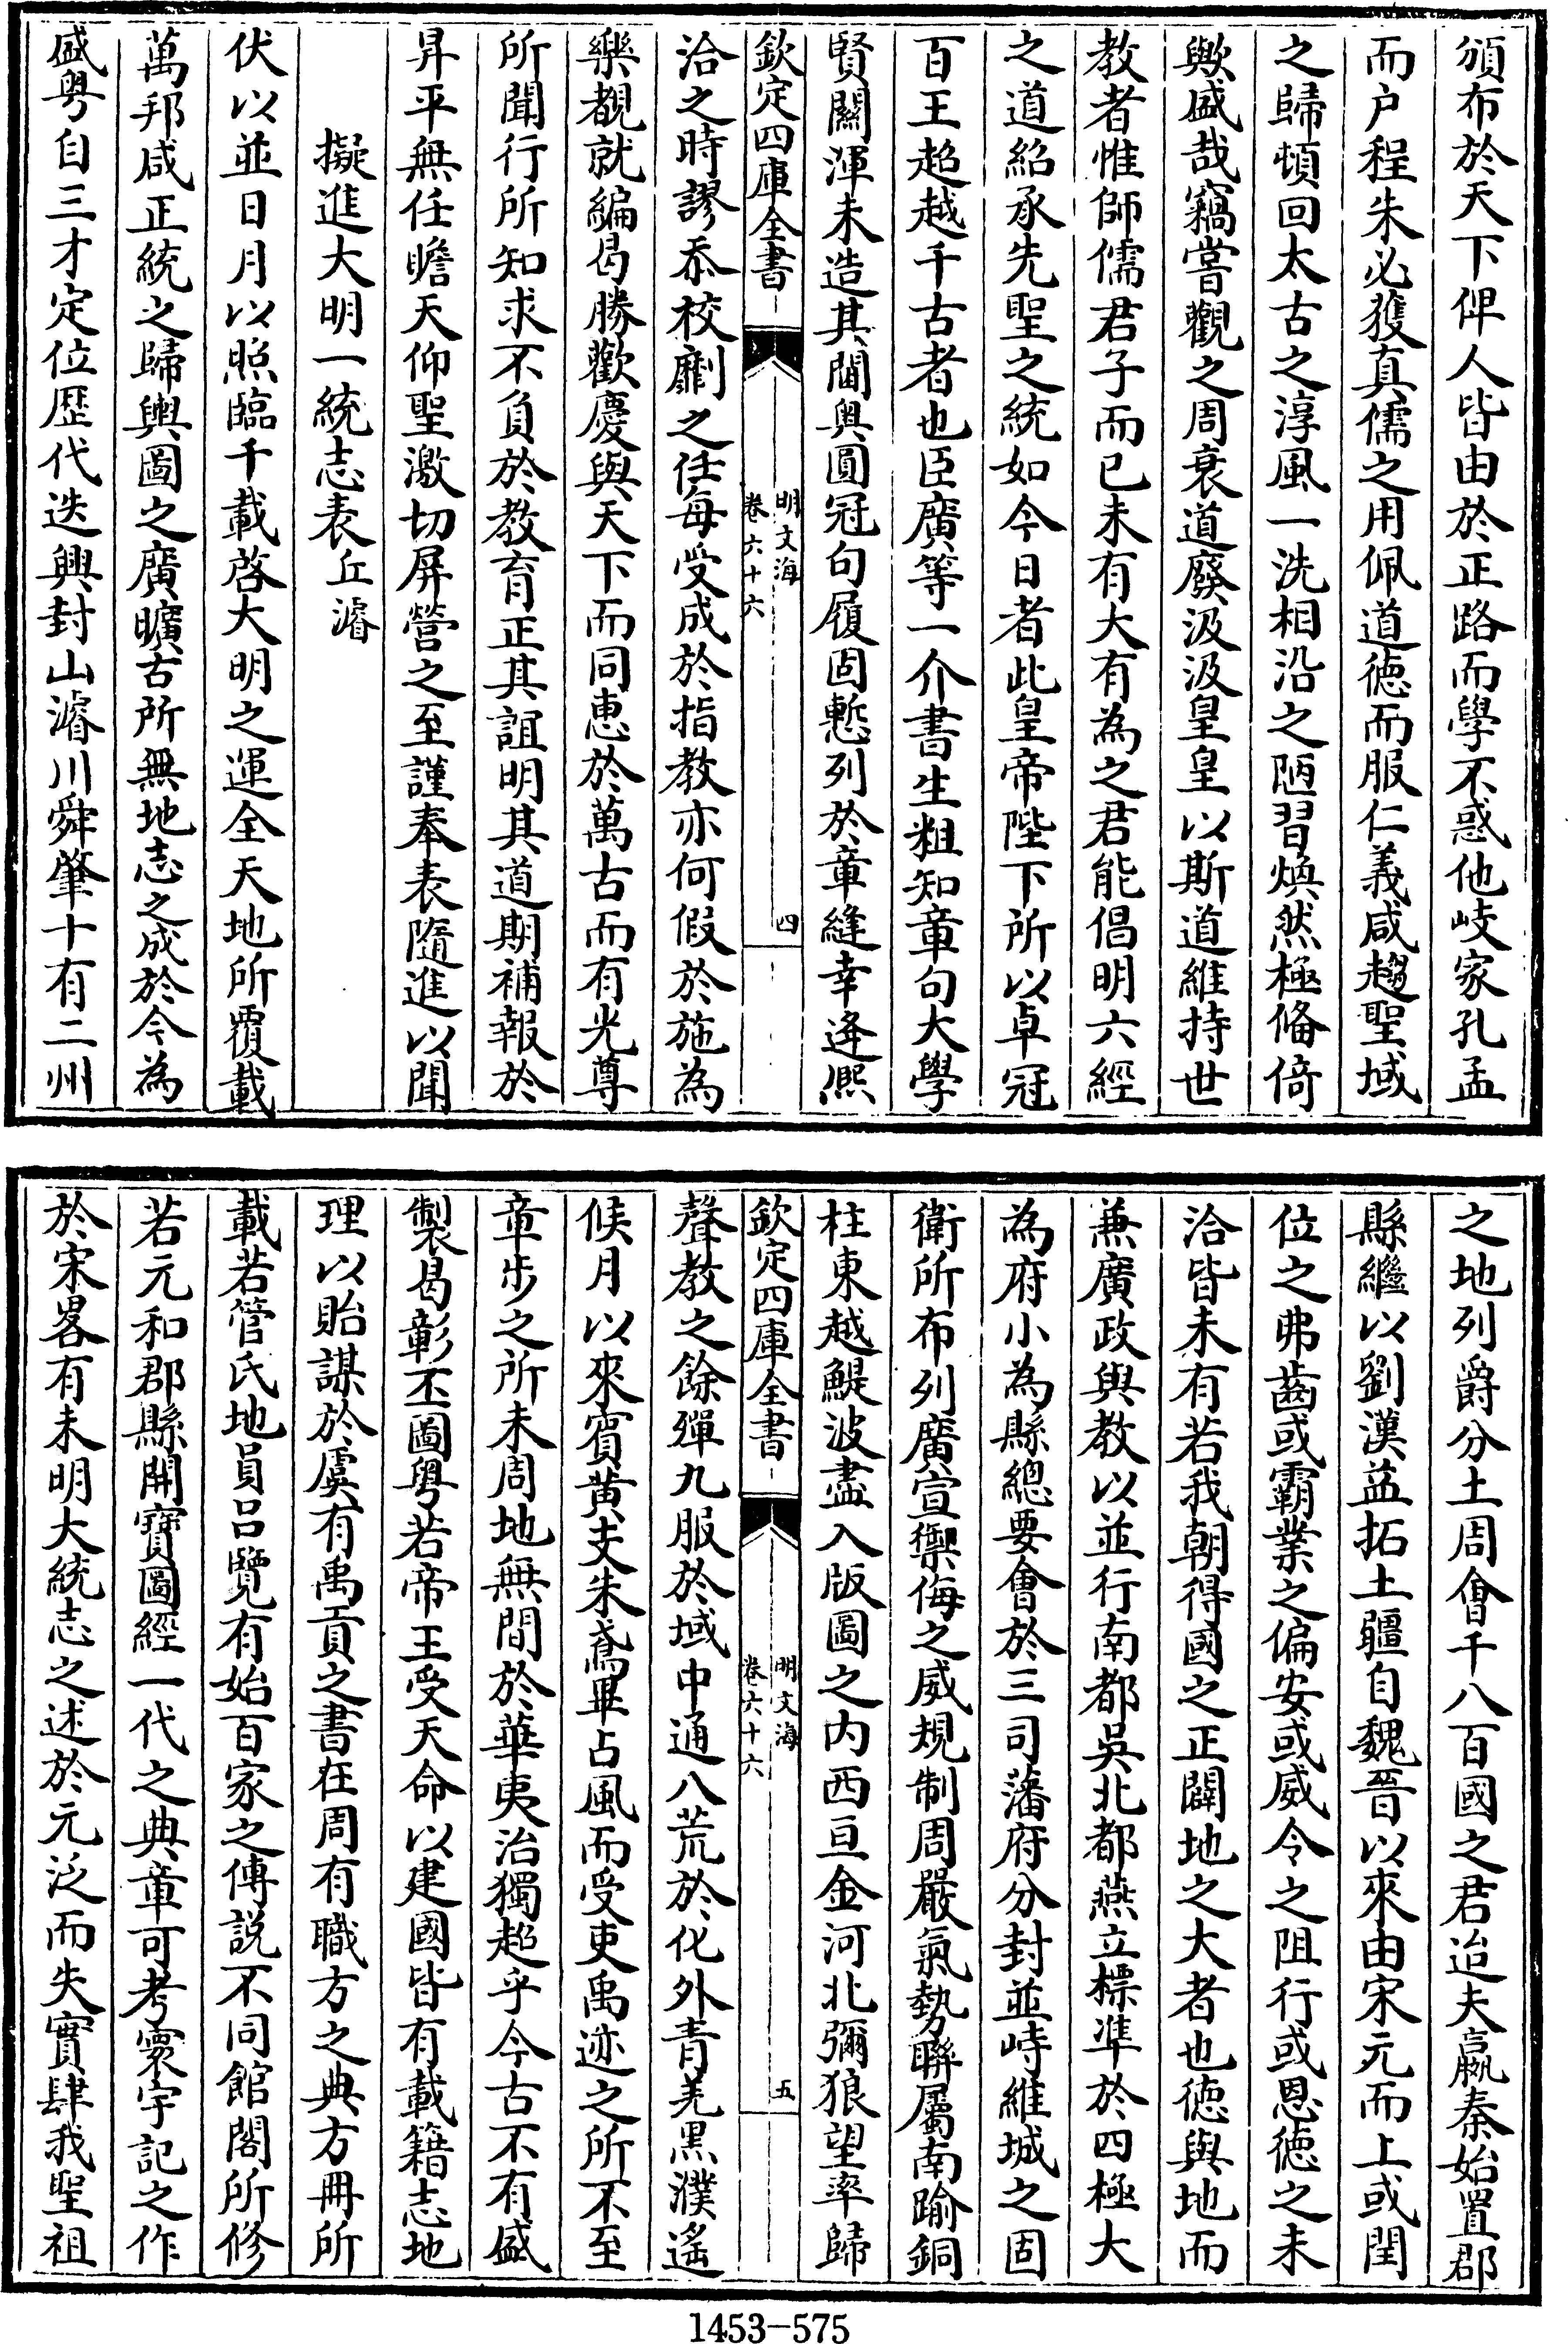 頒布於天下俾人皆由於正路而學不惑他岐家孔孟
而户程朱必獲真儒之用佩道德而服仁義咸趨聖域
之歸頓回太古之淳風一洗相沿之陋習煥然極備猗
歟盛哉竊嘗觀之周衰道廢汲汲皇皇以斯道維持世
教者惟師儒君子而已未有大有為之君能倡明六經
之道紹承先聖之統如今日者此皇帝陛下所以卓冠
百王超越千古者也臣廣等一介書生粗知章句大學
賢關渾未造其閫奥圓冠句履固慙列於章縫幸逢熙
欽定四庫全書
明文海
卷六十六
四
洽之時謬忝校劘之任每受成於指教亦何假於施為
樂覩就編曷勝歡慶與天下而同惠於萬古而有光尊
所聞行所知求不負於教育正其誼明其道期補報於
昇平無任瞻天仰聖激切屏營之至謹奉表隨進以聞
擬進大明一統志表丘濬
伏以並日月以照臨千載啓大明之運全天地所覆載
萬邦咸正統之歸輿圖之廣曠古所無地志之成於今為
盛粤自三才定位歴代迭興封山濬川舜肇十有二州
之地列爵分土周會千八百國之君迨夫嬴秦始置郡
縣繼以劉漢益拓土疆自魏晉以來由宋元而上或閏
位之弗齒或霸業之偏安或威令之阻行或恩德之未
洽皆未有若我朝得國之正闢地之大者也德與地而
兼廣政與教以並行南都吳北都燕立標準於四極大
為府小為縣總要會於三司藩府分封並峙維城之固
衛所布列廣宣禦侮之威規制周嚴氣勢聯屬南踰銅
柱東越鯷波盡入版圖之内西亘金河北彌狼望率歸
欽定四庫全書
明文海
卷六十六
五
聲教之餘殫九服於域中通八荒於化外青羌黒濮遙
候月以來賓黄支朱鳶畢占風而受吏禹迹之所不至
章步之所未周地無間於華夷治獨超乎今古不有盛
製曷彰丕圖粤若帝王受天命以建國皆有載籍志地
理以貽謀於虞有禹貢之書在周有職方之典方冊所
載若管氏地員吕覽有始百家之傳説不同館閣所修
若元和郡縣開寶圖經一代之典章可考寰宇記之作
於宋畧有未明大統志之述於元泛而失實肆我聖祖
1453-575